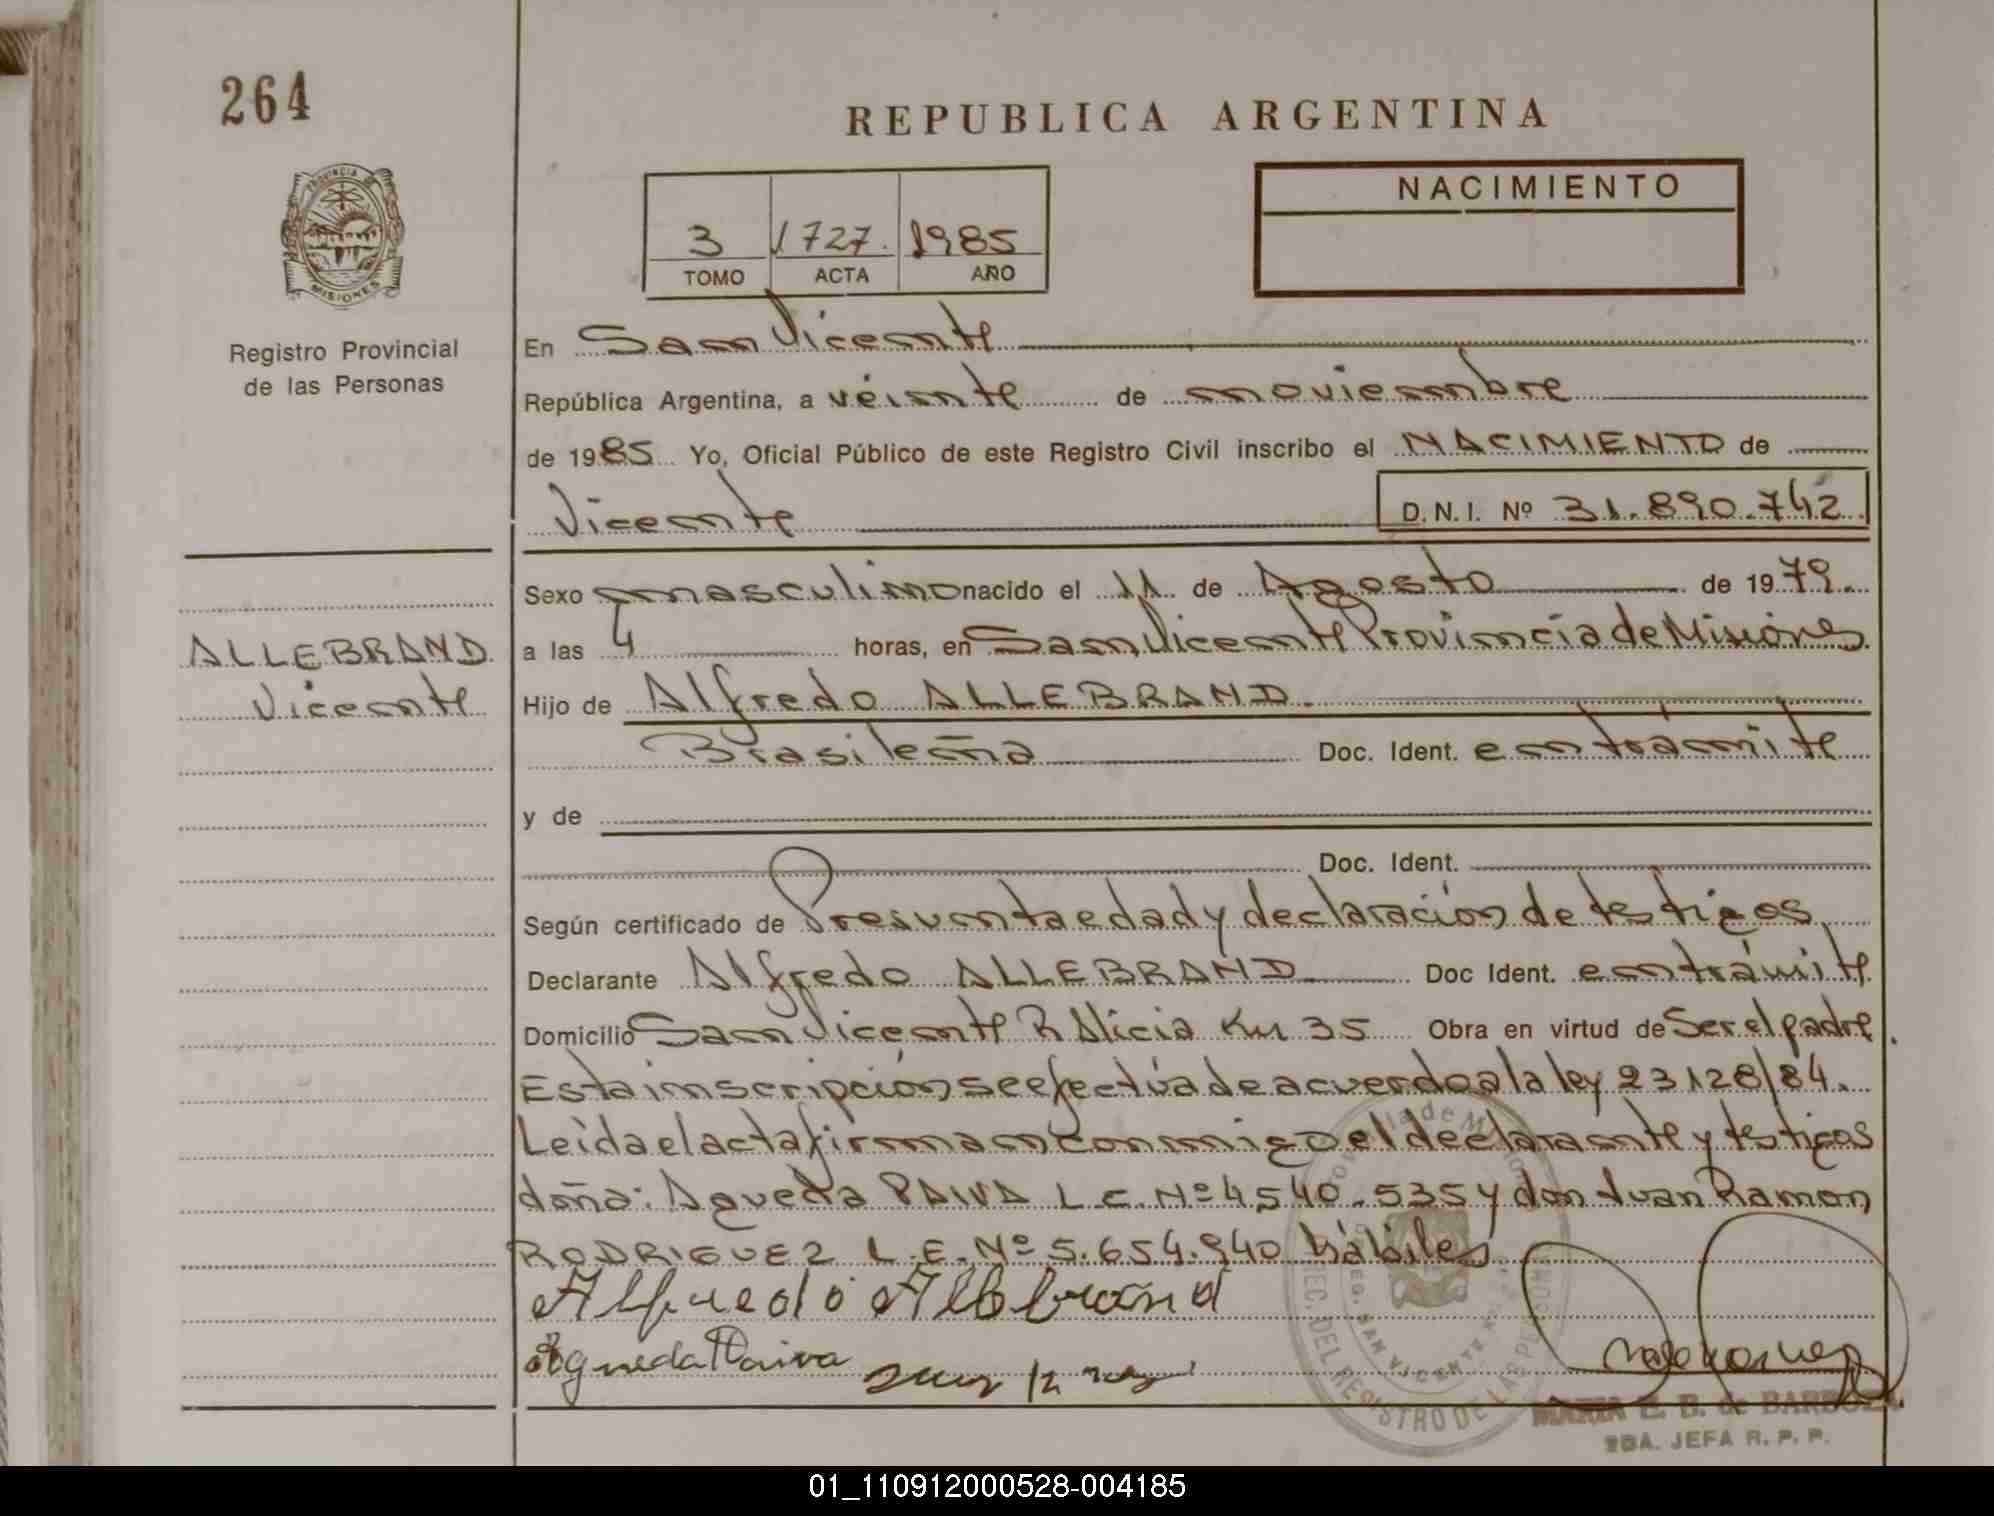 264
REPUBLICA ARGENTINA
PROVINCIA DE
MISIONES
Registro Provincial
de las Personas
3 1727. 1985
TOMO ACTA AÑO
NACIMIENTO
En San Vicente
República Argentina, a veinte de noviembre
de 1985 Yo, Oficial Público de este Registro Civil inscribo el NACIMIENTO de
Vicente D.N.I. Nº 31.890.742
ALLEBRAND
Vicente
Sexo masculino nacido el 11 de Agosto de 1979
a las 4 horas, en San Vicente Provincia de Misiones
Hijo de Alfredo ALLEBRAND.
Brasileña Doc. Ident. en trámite
y de
Doc. Ident.
Según certificado de Presunta edad y declaración de testigos
Declarante Alfredo ALLEBRAND Doc Ident. en trámite
Domicilio San Vicente R Alicia Km 35 Obra en virtud de Ser el padre.
Esta inscripción se efectúa de acuerdo a la ley 23128/84.
Leída el acta firman conmigo el declarante y testigos
doña: Agueda PAIVA L.C. Nº 4.540.535 y don Juan Ramon
RODRIGUEZ L.E. Nº 5.654.940 hábiles
Alfredo Allebrand
Agueda Paiva
DEL REGISTRO DE LAS PERSONAS
SAN VICENTE
MARIA E. B. de BARBOZA
2DA. JEFA R. P. P.
01_110912000528-004185